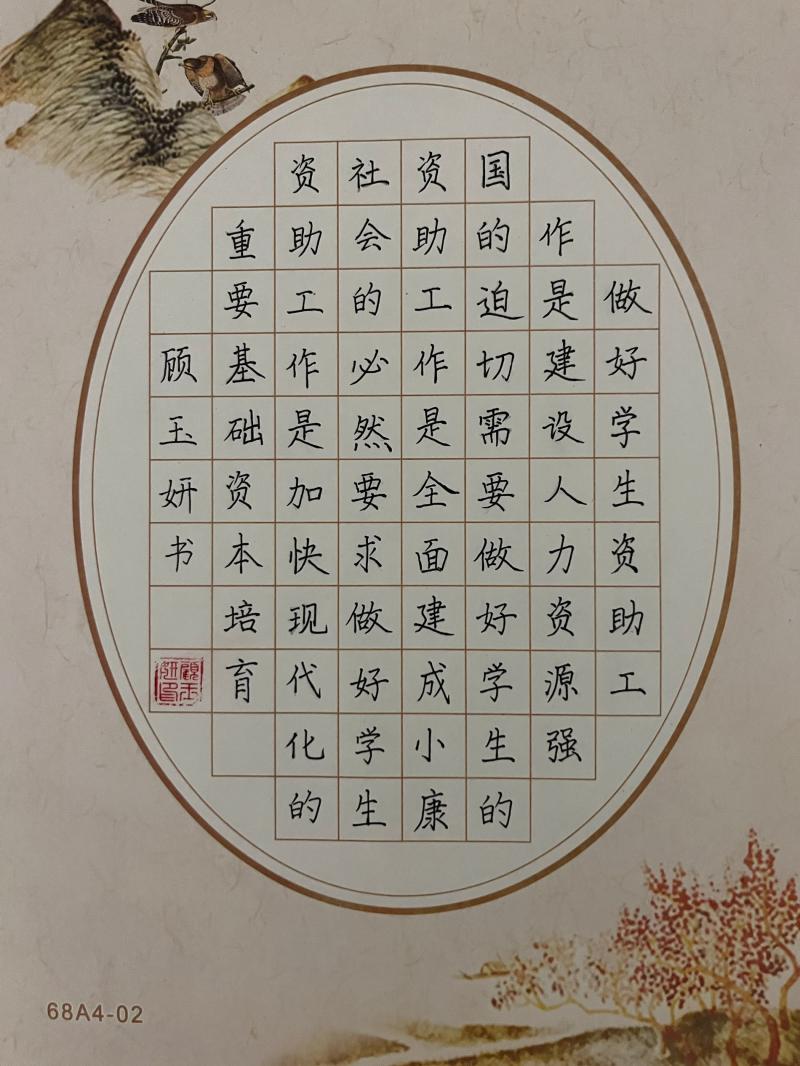 做好学生资助工
作是建设人力资源强
国的迫切需要做好学生的
资助工作是全面建成小康
社会的必然要求做好学生
资助工作是加快现代化的
重要基础资本培育
顾玉妍书
顾玉妍印
68A4-02